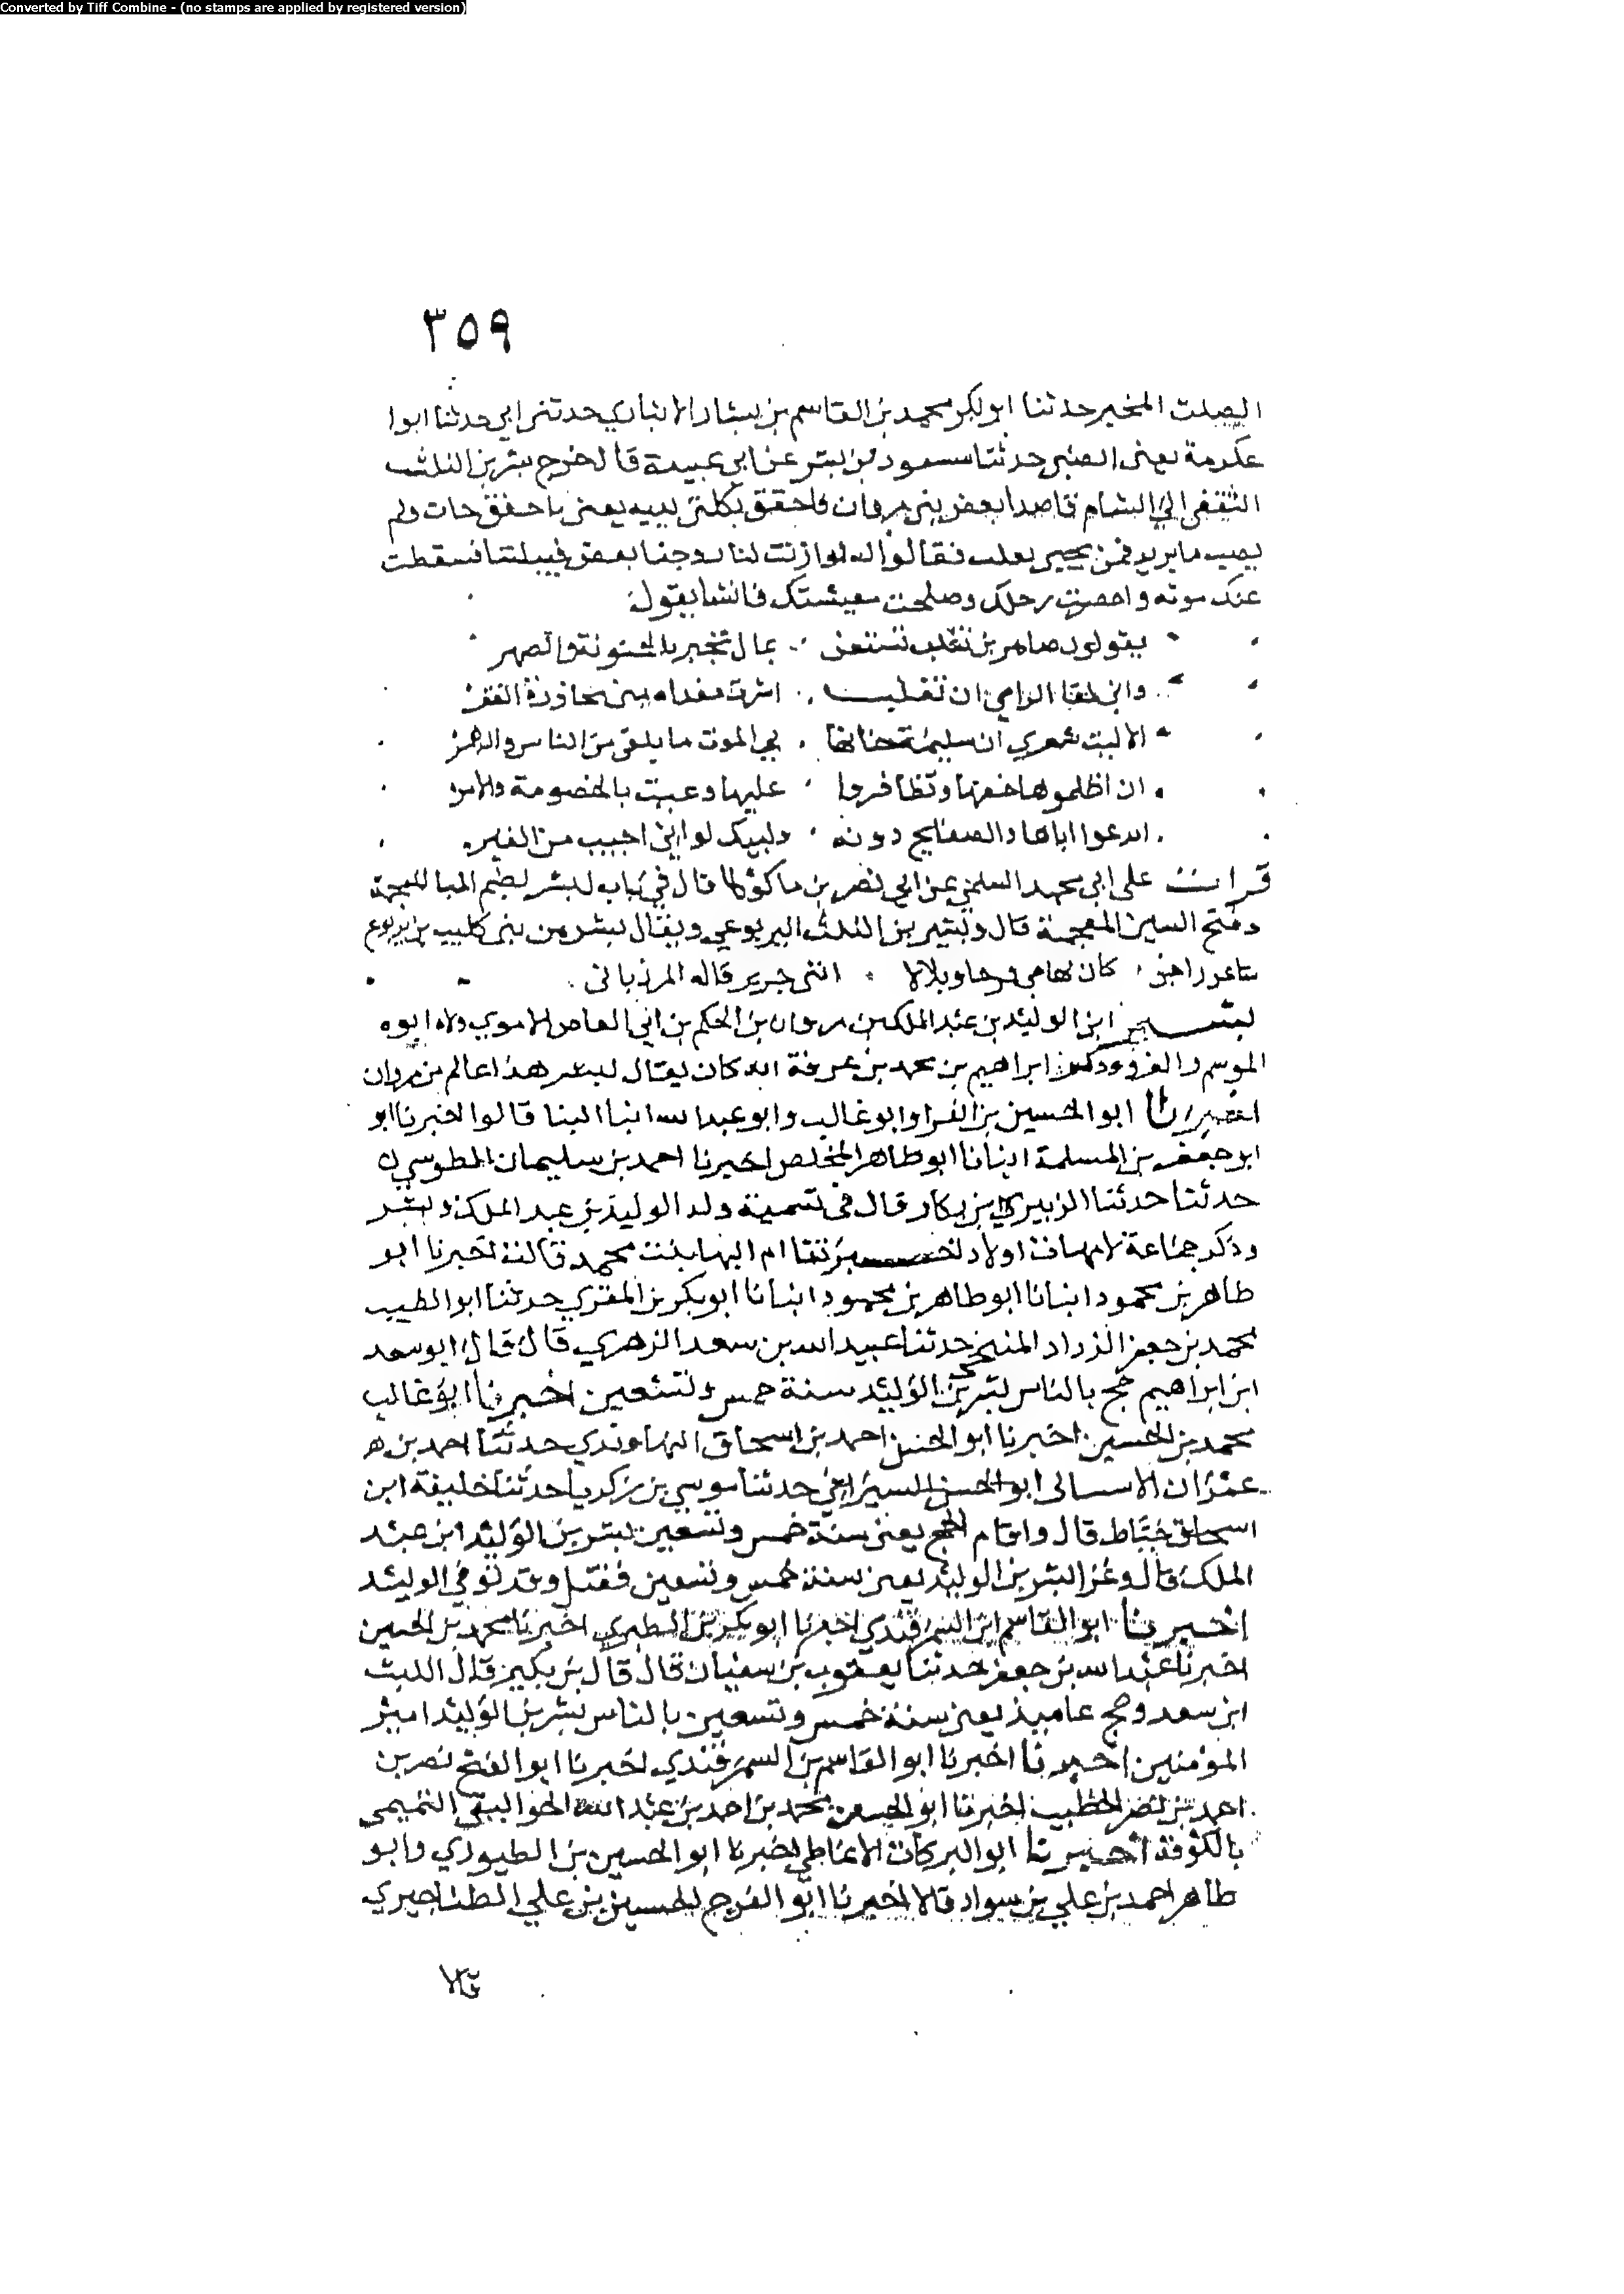 Converted by Tiff Combine - (no stamps are applied by registered version)
٣٥٩
الصلت المخبر حدثنا ابو بكر محمد بن القاسم بن بشار الانباري حدثني ابي حدثنا ابوا
عكرمة يعنى الضبي حدثنا مسعود بن بشر عن ابي عبيدة قال خرج بشر بن
الثقفي الى الشام قاصدا بعض بني مروان يعنى ولم
يصب ما يريد فقالوا له لنا بعض فسقطت
عنك مونه و رحلك وصلحت معيشتك فانشا يقول
يقولون صاهر بن تغلب بمال والصهر
واني الفقر
الا ليت شعري ان سليمة الموت ما يلقى من الناس والدهر
ان اظلموها وتظافروا عليها بالخصومة والامر
اتدعوا اباها والصفايح دونه ولبيك لو اني اجيب من القبر
قرات على ابي محمد السلمي عن ابي نصر بن ماكولا قال في باب بشر المعجمة
وفتح السين المعجمة قال وبشير بن اليربوعي ويقال بشر من بني كليب بن يربوع
شاعر راجز كان جرير قاله المرزباني
بشر ابن الوليد بن عبد الملك بن مروان بن الحكم بن ابي العاص الاموي ولاه ابوه
الموسم والغزو وذكر ابراهيم بن محمد بن عرفة انه كان يقال لبشر هذا عالم بن مروان
اخبرنا ابو الحسين بن الفرا وابو غالب وابو عبد الله ابنا البنا قالوا اخبرنا ابو
ابو جعفر بن المسلمة انبانا ابو طاهر المخلص اخبرنا احمد بن سليمان الطوسي
حدثنا حدثنا الزبيري بن بكار قال في تسمية ولد الوليد بن عبد الملك وبشر
وذكر جماعة لامهات اولاد اخبرتنا ام البها بنت محمد قالت اخبرنا ابو
طاهر بن محمود انبانا ابو طاهر بن محمود انبانا ابو بكر بن المقري حدثنا ابو الطيب
محمد بن جعفر الزراد المنبجي حدثنا عبيد الله بن سعد الزهري قال قال ابو سعد
ابن ابراهيم حج بالناس بشر بن الوليد سنة خمس وتسعين اخبرنا ابو غالب
محمد بن الحسين اخبرنا ابو الحسن احمد بن اسحاق النهاوندي حدثنا احمد بن
عمران ابو الحسن حدثنا موسى بن زكريا حدثنا خليفة ابن
اسحاق خياط قال واقام الحج يعني سنة خمس وتسعين بشر بن الوليد ابن عبد
الملك قال وغزا بشر بن الوليد يعني سنة خمس وتسعين فقفل وقد توفي الوليد
اخبرنا ابو القاسم ابن السمرقندي اخبرنا ابو بكر بن الطبري اخبرنا محمد بن الحسين
اخبرنا عبد الله بن جعفر حدثنا يعقوب بن سفيان قال قال بن بكير قال الليث
ابن سعد وحج عاميذ يعني سنة خمس وتسعين بالناس بشر بن الوليد امير
المؤمنين اخبرنا اخبرنا ابو القاسم بن السمرقندي اخبرنا ابو الفتح نصر بن
احمد بن نصر الخطيب اخبرنا ابو الحسن محمد بن احمد بن عبد الله الجواليقي التميمي
بالكوفة اخبرنا ابو البركات الانماطي اخبرنا ابو الحسين بن الطيوري وابو
طاهر احمد بن علي بن سوار قالا اخبرنا ابو الفرج الحسين بن علي الطناجيري